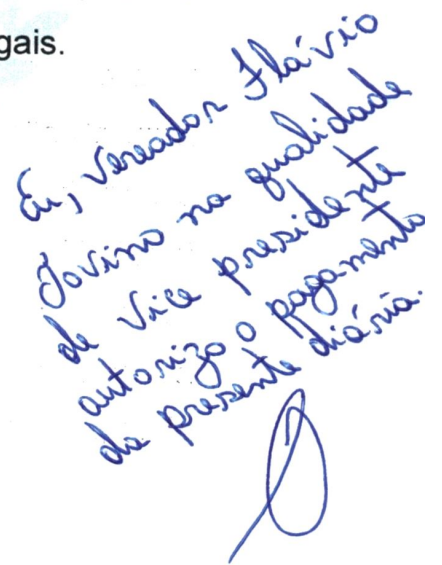 gais.
Eu, Vereador Flávio
Jovino na qualidade
de Vice presidente
autorizo o pagamento
da presente diária.